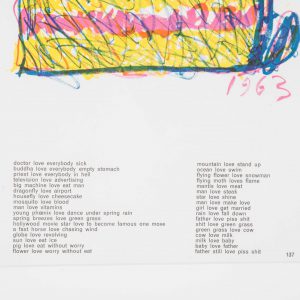 1963
doctor love everybody sick
buddha love everybody empty stomach
priest love everybody in hell
television love advertising
big machine love eat man
dragonfly love airport
housefly love cheesecake
mosquito love blood
man love vitamins
young phœnix love dance under spring rain
spring breezes love green grass
hollywood movie star love to become famous one move
a fast horse love chasing wind
globe love revolving
sun love eat ice
pig love eat without worry
flower love worry without eat
mountain love stand up
ocean love swim
flying flower love snowman
flying moth loves flame
mantis love meat
man love steak
star love shine
man love make love
girl love get married
rain love fall down
father love piss shit
shit green love grass
green grass love cow
cow love milk
milk love baby
baby love father
father still love piss shit
137